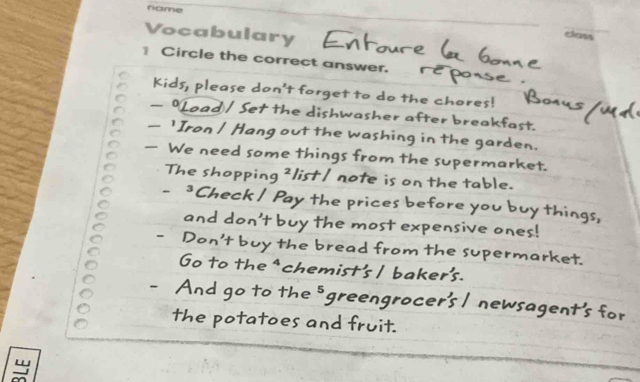 name
class
Vocabulary Entoure la bonne
1 Circle the correct answer. réponse.
Kids, please don't forget to do the chores! Bonus /
- ⁰Load / Set the dishwasher after breakfast.
- ¹Iron / Hang out the washing in the garden.
- We need some things from the supermarket.
The shopping ²list / note is on the table.
- ³Check / Pay the prices before you buy things,
and don't buy the most expensive ones!
- Don't buy the bread from the supermarket.
Go to the ⁴chemist's / baker's.
- And go to the ⁵greengrocer's / newsagent's for
the potatoes and fruit.
BLE